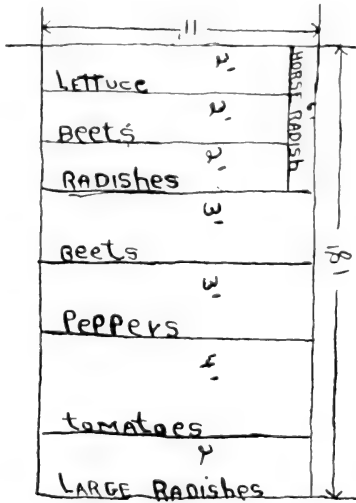 11'
2'
Lettuce
2'
Beets
2'
RADIShes
HORSE RADISh
6'
3'
Beets
3'
Peppers
4'
tomatoes
2
LARGE RaDishes
18'